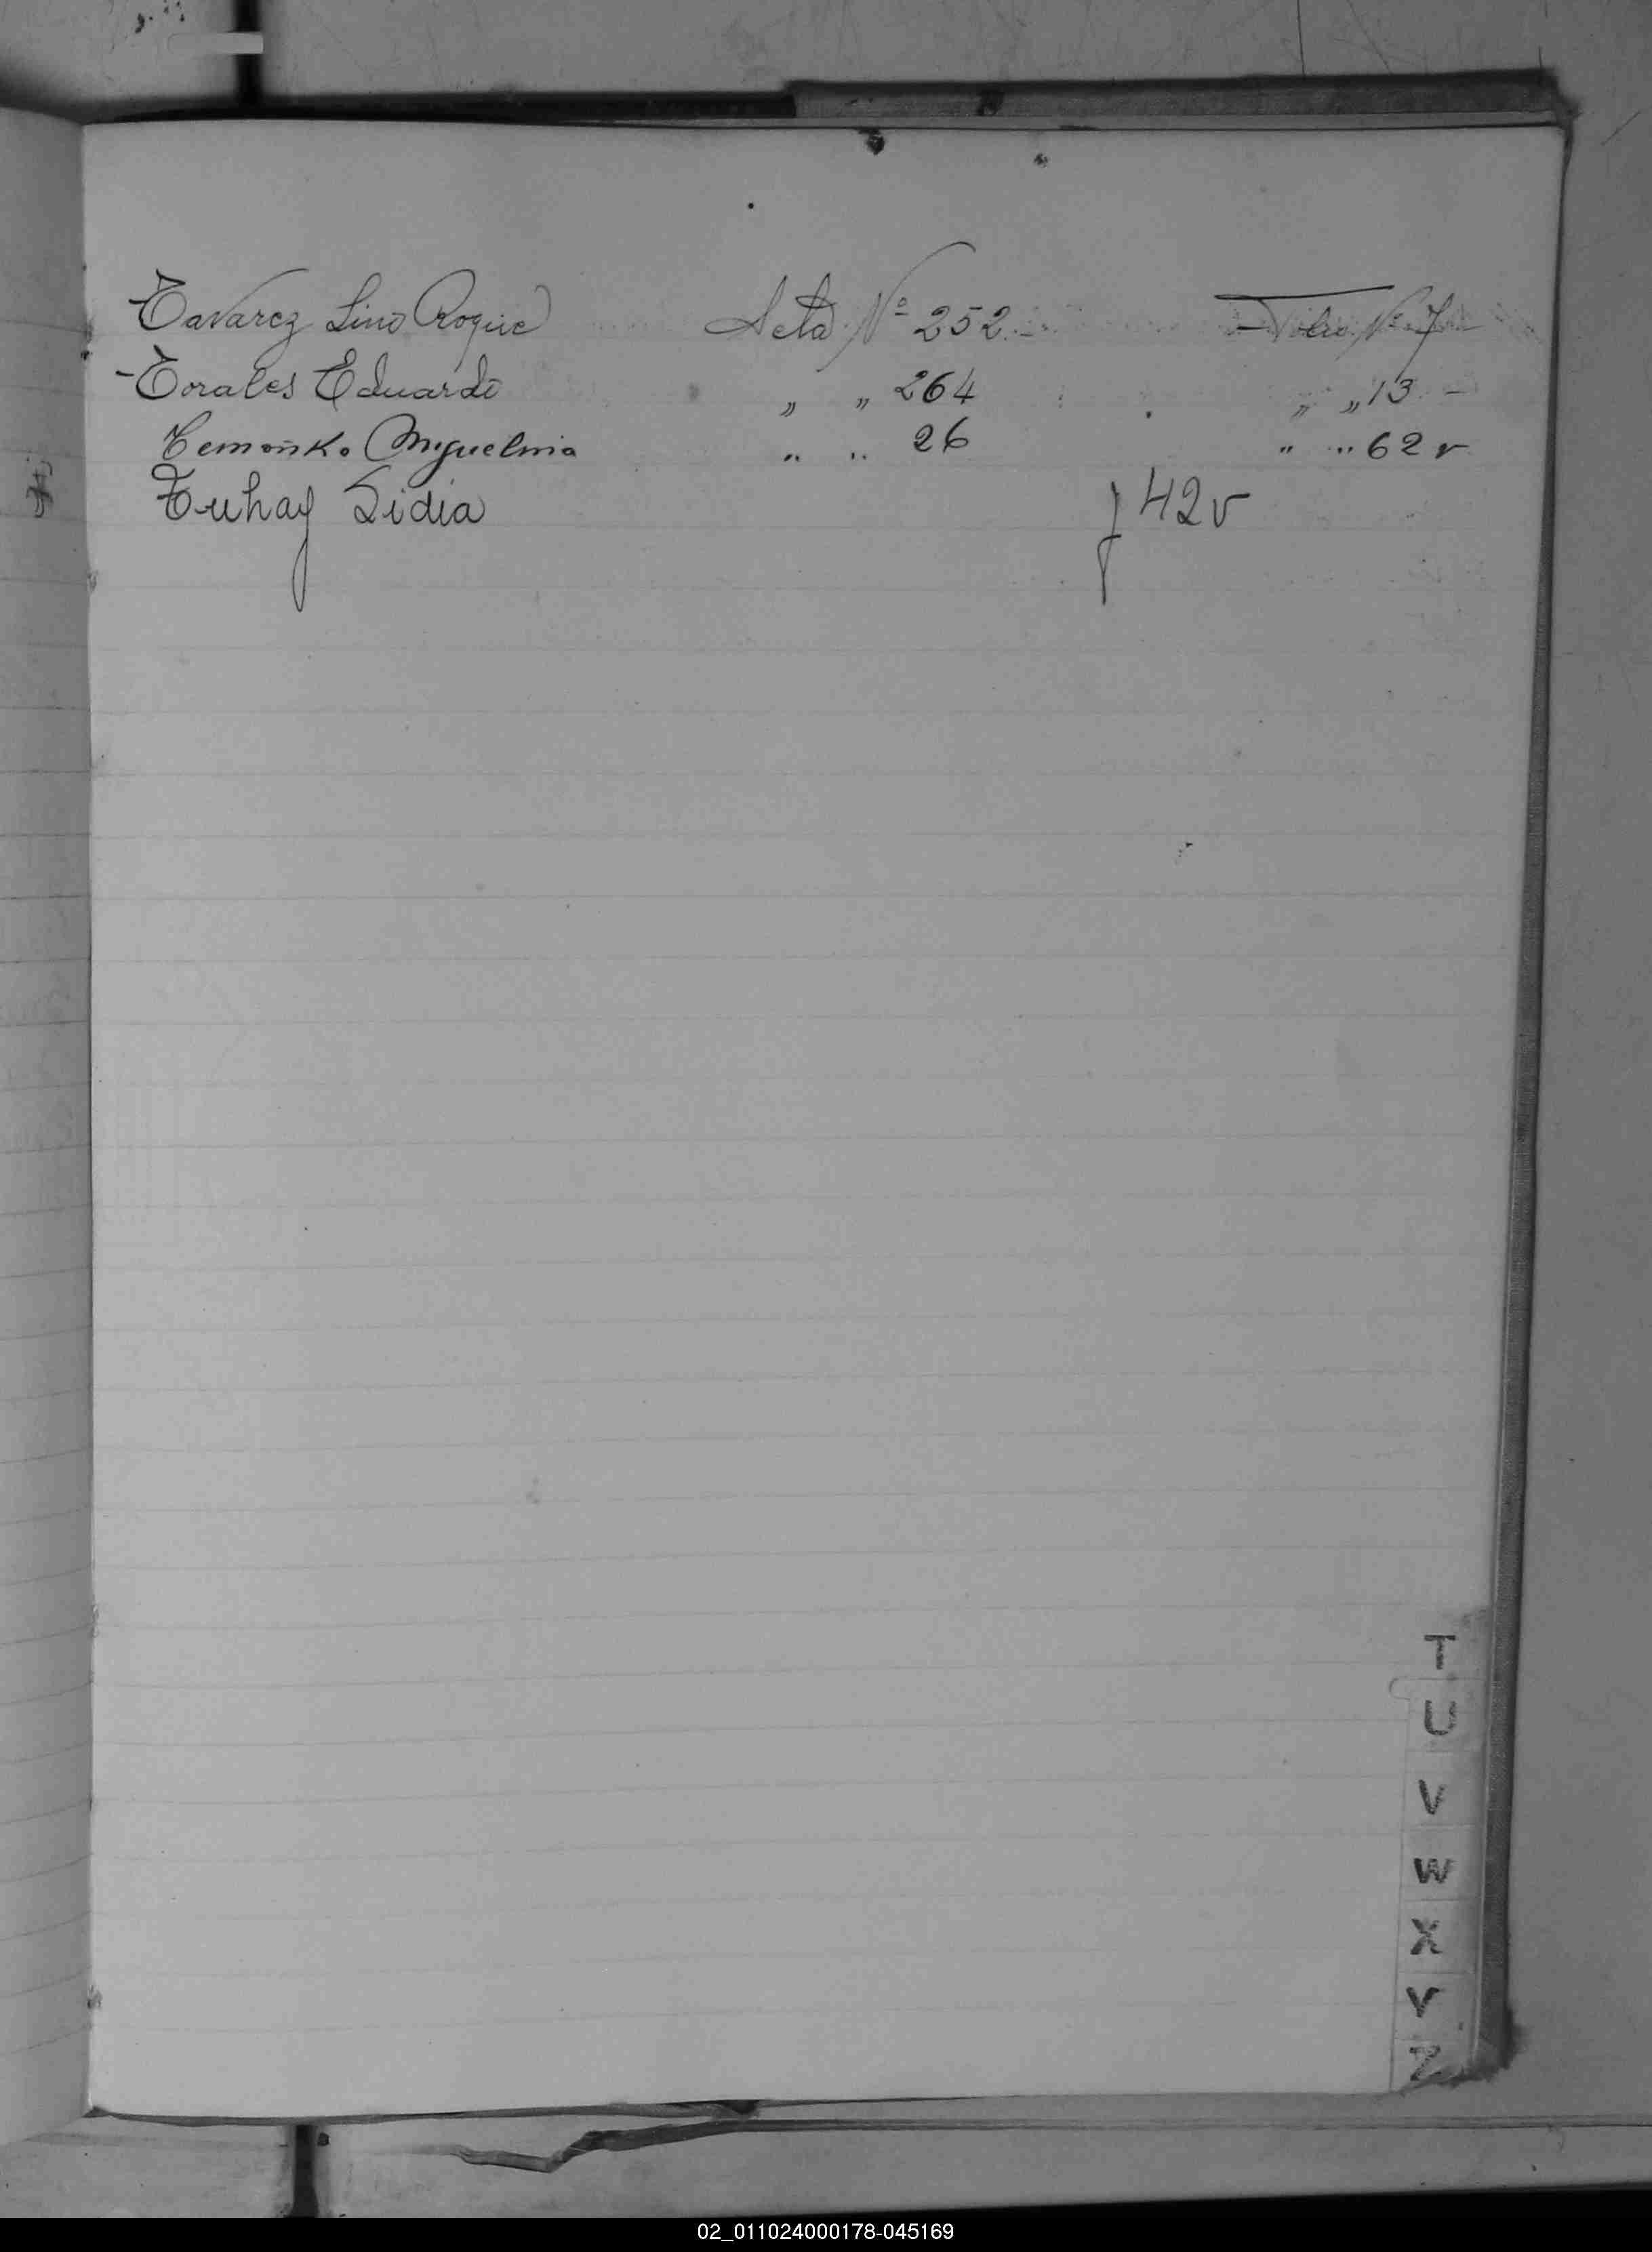 Tavarez Lino Roque Acta Nº 252.- Folio Nº 7
-Torales Eduardo „ „ 264 „ „ 13 -
Temoñko Miguelina „ „ 26 „ „ 62 v
Tuhay Lidia f 42v
T
U
V
W
X
Y
Z
02_011024000178-045169